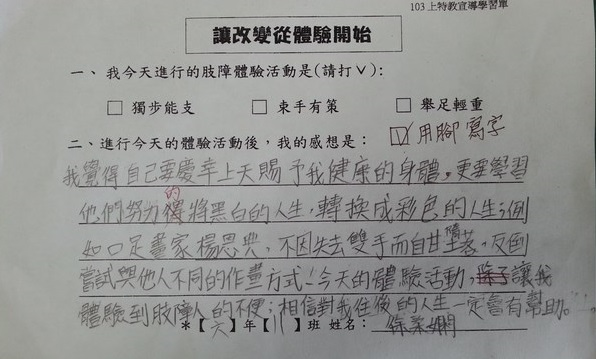 103上特教宣導學習單
讓改變從體驗開始
一、我今天進行的肢障體驗活動是(請打∨):
□ 獨步能支 □ 束手有策 □ 舉足輕重
二、進行今天的體驗活動後,我的感想是: ☑用腳寫字
我覺得自己要慶幸上天賜予我健康的身體,更要學習
他們努力的將黑白的人生,轉換成彩色的人生;例
如口足畫家楊恩典,不因失去雙手而自甘墮落,反倒
嘗試與他人不同的作畫方式!今天的體驗活動,讓我
體驗到肢障人的不便;相信對我往後的人生一定會有幫助。
*【六】年【八】班 姓名:徐